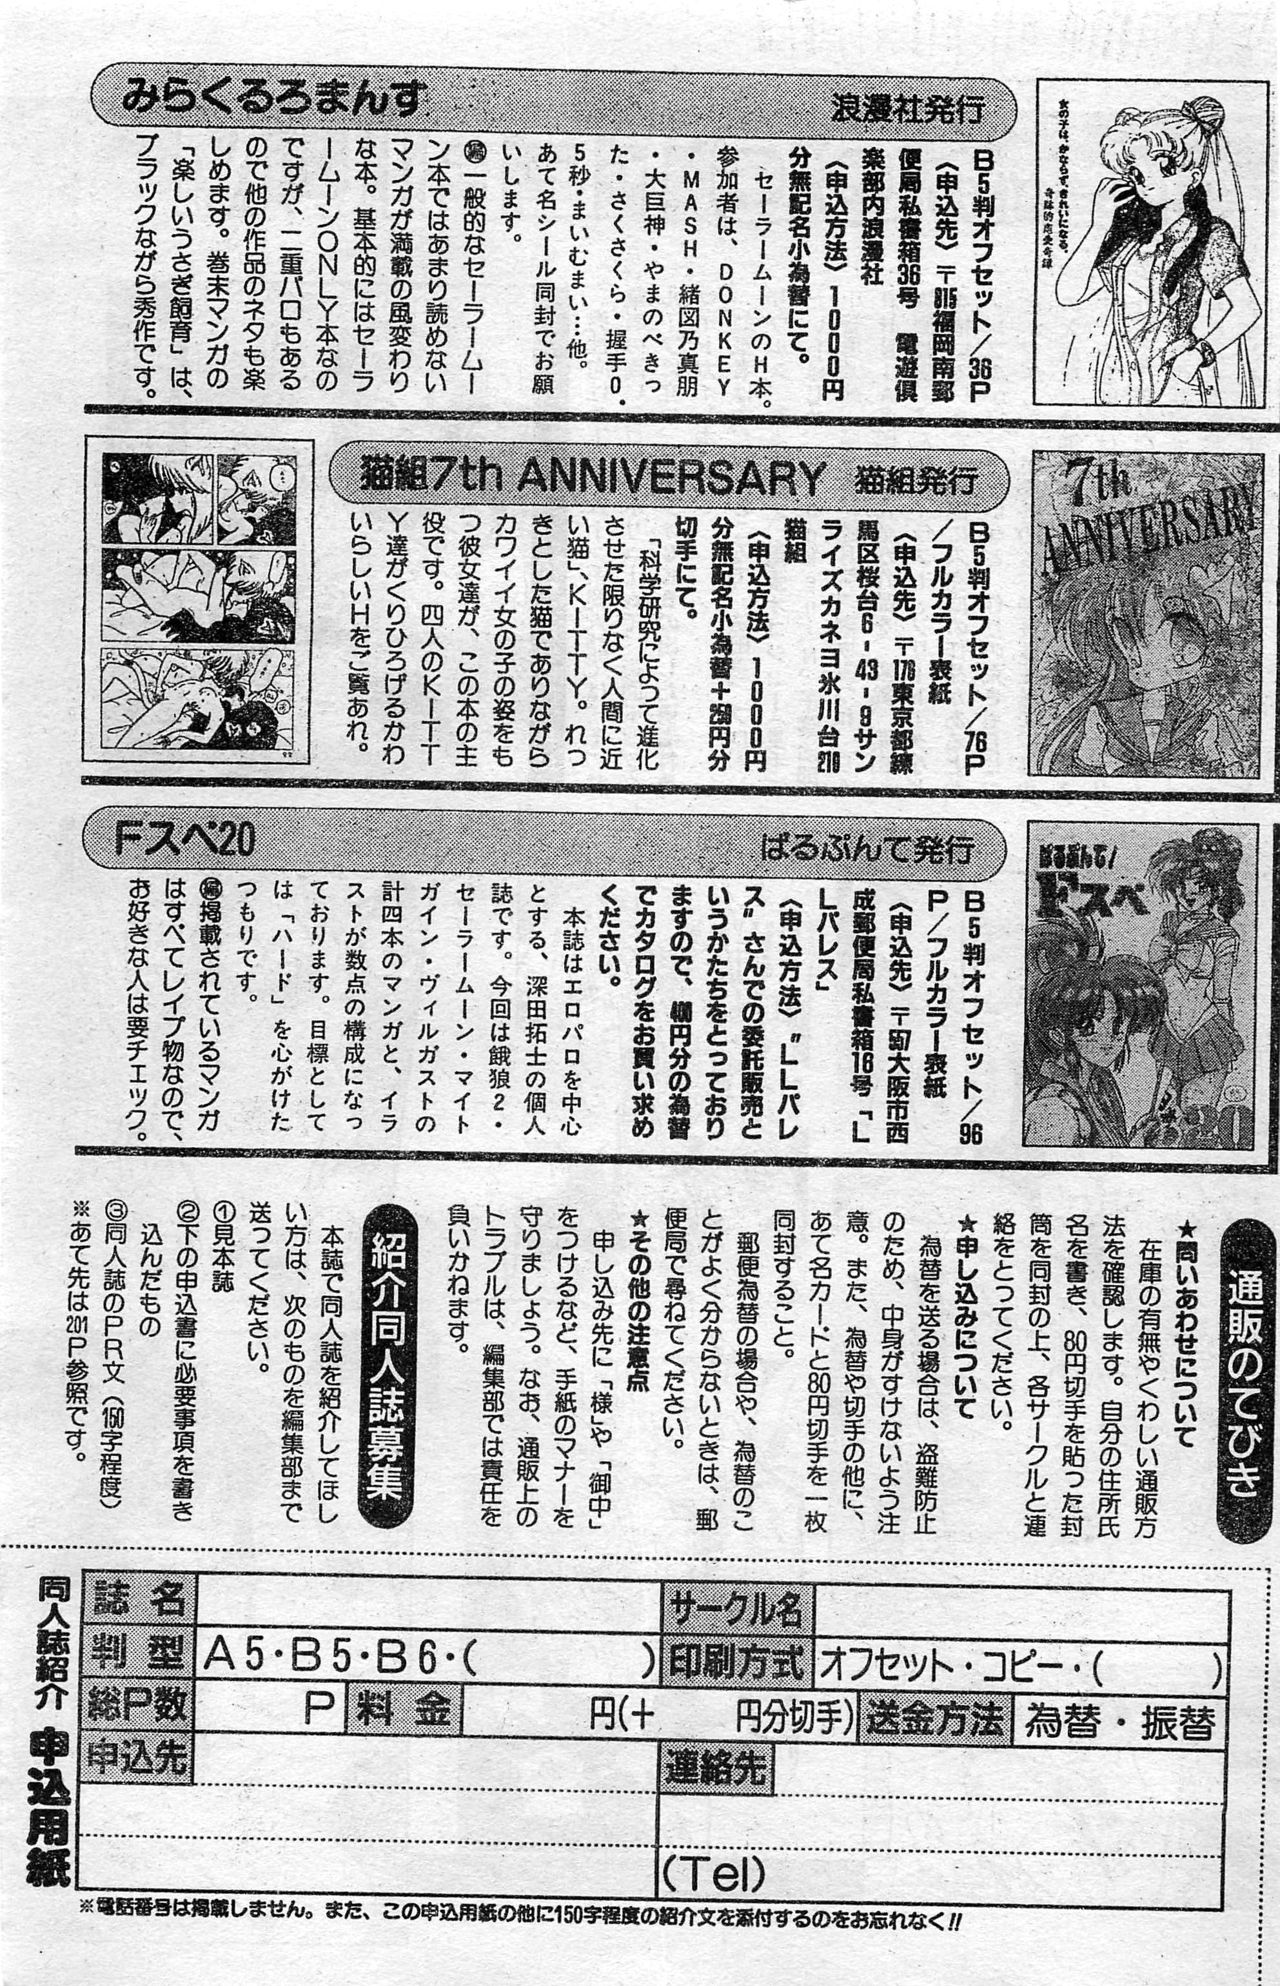 みらくるろまんす
浪漫社発行
女の子は、かならず、きれいになる。
B5判オフセット/36P
〈申込先〉〒815福岡南郵
便局私書箱36号 電遊倶
楽部内浪漫社
〈申込方法〉1000円
分無記名小為替にて。
セーラームーンのH本。
参加者は、DONKEY
・MASH・緒図乃真朋
・大巨神・やまのべきっ
た・さくさくら・握手0.
5秒・まいむまい…他。
あて名シール同封でお願
いします。
㊙一般的なセーラームー
ン本ではあまり読めない
マンガが満載の風変わり
な本。基本的にはセーラ
ームーンONLY本なの
ですが、二重パロもある
ので他の作品のネタも楽
しめます。巻末マンガの
「楽しいうさぎ飼育」は、
ブラックながら秀作です。
猫組7th ANNIVERSARY
猫組発行
7th
ANNIVERSARY
B5判オフセット/76P
/フルカラー表紙
〈申込先〉〒176東京都練
馬区桜台6-43-9サン
ライズカネヨ氷川台210
猫組
〈申込方法〉1000円
分無記名小為替+250円分
切手にて。
「科学研究によって進化
させた限りなく人間に近
い猫」、KITTY。れっ
きとした猫でありながら
カワイイ女の子の姿をも
つ彼女達が、この本の主
役です。四人のKITT
Y達がくりひろげるかわ
いらしいHをご覧あれ。
Fスペ20
ぱるぷんて発行
ぱるぷんて!
Fスペ
20
B5判オフセット/96
P/フルカラー表紙
〈申込先〉〒557大阪市西
成郵便局私書箱16号「L
Lパレス」
〈申込方法〉"LLパレ
ス"さんでの委託販売と
いうかたちをとっており
ますので、400円分の為替
でカタログをお買い求め
ください。
本誌はエロパロを中心
とする、深田拓士の個人
誌です。今回は餓狼2・
セーラームーン・マイト
ガイン・ヴィルガストの
計四本のマンガと、イラ
ストが数点の構成になっ
ております。目標として
は「ハード」を心がけた
つもりです。
掲載されているマンガ
はすべてレイプ物なので、
お好きな人は要チェック。
通販のてびき
★問いあわせについて
在庫の有無やくわしい通販方
法を確認します。自分の住所氏
名を書き、80円切手を貼った封
筒を同封の上、各サークルと連
絡をとってください。
★申し込みについて
為替を送る場合は、盗難防止
のため、中身がすけないよう注
意。また、為替や切手の他に、
あて名カードと80円切手を一枚
同封すること。
郵便為替の場合や、為替のこ
とがよく分からないときは、郵
便局で尋ねてください。
★その他の注意点
申し込み先に「様」や「御中」
をつけるなど、手紙のマナーを
守りましょう。なお、通販上の
トラブルは、編集部では責任を
負いかねます。
紹介同人誌募集
本誌で同人誌を紹介してほし
い方は、次のものを編集部まで
送ってください。
①見本誌
②下の申込書に必要事項を書き
込んだもの
③同人誌のPR文(150字程度)
※あて先は201P参照です。
同人誌紹介 申込用紙
誌名 サークル名
判型 A5・B5・B6・( ) 印刷方式 オフセット・コピー・( )
総P数 P 料金 円(+ 円分切手) 送金方法 為替・振替
申込先 連絡先
(Tel)
※電話番号は掲載しません。また、この申込用紙の他に150字程度の紹介文を添付するのをお忘れなく!!